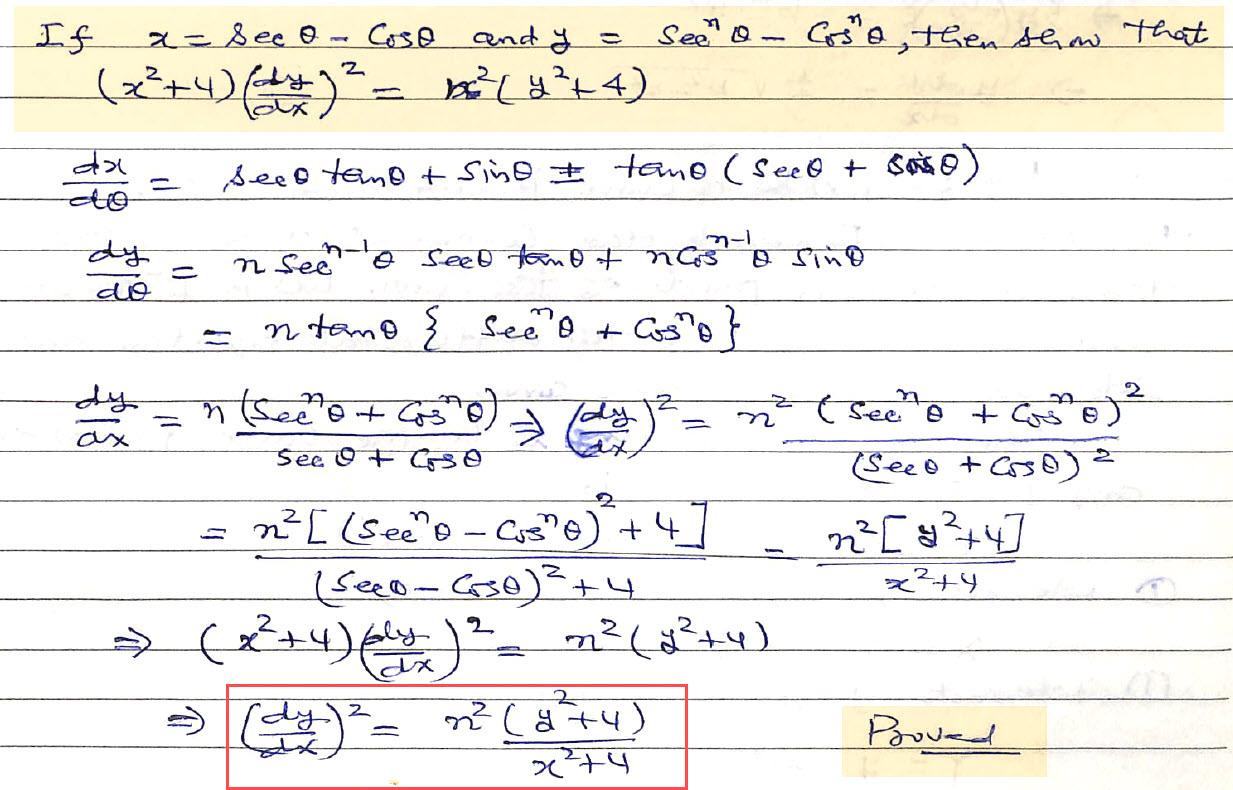 If x = Sec θ - Cosθ and y = Secⁿ θ - Cosⁿ θ, then show that
(x²+4)(dy/dx)² = n²(y²+4)
dx/dθ = Secθ tanθ + Sinθ = tanθ (Secθ + Cosθ)
dy/dθ = n Secⁿ⁻¹θ Secθ tanθ + n Cosⁿ⁻¹θ Sinθ
= n tanθ { Secⁿθ + Cosⁿθ }
dy/dx = n (Secⁿθ + Cosⁿθ) / (Sec θ + Cosθ) ⇒ (dy/dx)² = n² (Secⁿθ + Cosⁿθ)² / (Secθ + Cosθ)²
= n²[(Secⁿθ - Cosⁿθ)² + 4] / ((Secθ - Cosθ)² + 4) = n²[y²+4] / (x²+4)
⇒ (x²+4)(dy/dx)² = n²(y²+4)
⇒ (dy/dx)² = n²(y²+4) / (x²+4)
Proved